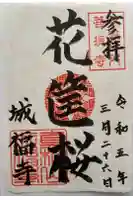 参拝
花筐桜
城福寺
令和五年
三月二十六日